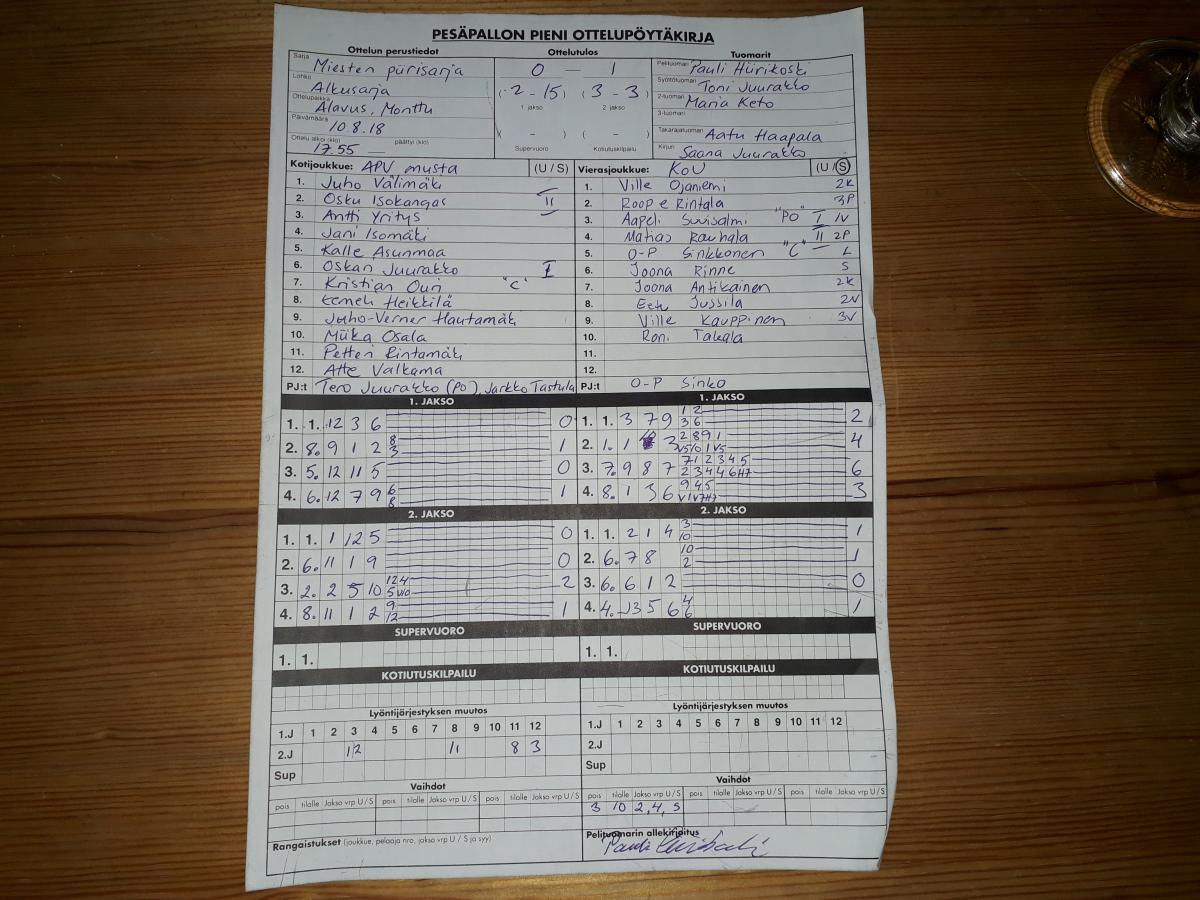 PESÄPALLON PIENI OTTELUPÖYTÄKIRJA
Ottelun perustiedot Ottelutulos Tuomarit
Sarja Miesten piirisarja 0 – 1 Pelituomari Pauli Hiirikoski
Lohko Alkusarja (2 - 15) (3 - 3) Syöttötuomari Toni Juurakko
Ottelupaikka Alavus, Monttu 1 jakso 2 jakso 2-tuomari Maria Keto
3-tuomari
Päivämäärä 10.8.18 ( - ) ( - ) Takarajatuomari Aatu Haapala
Ottelu alkoi (klo) 17.55 – päättyi (klo) Supervuoro Kotiutuskilpailu Kirjuri Saana Juurakko
Kotijoukkue: APV musta (U / S) Vierasjoukkue: KoU (U / S)
1. Juho Välimäki 1. Ville Ojaniemi 2K
2. Osku Isokangas II 2. Roope Rintala 3P
3. Antti Yritys 3. Aapeli Suvisalmi "PO" I 1V
4. Jani Isomäki 4. Matias Rauhala II 2P
5. Kalle Asunmaa 5. O-P Sinkkonen "C" L
6. Oskari Juurakko I 6. Joona Rinne S
7. Kristian Ouri "C" 7. Joona Antikainen 2K
8. Heikkilä 8. Eetu Jussila 2V
9. Juho-Verner Hautamäki 9. Ville Kauppinen 3V
10. Miika Osala 10. Roni Takala
11. Petteri Rintamäki 11.
12. Atte Valkama 12.
PJ:t Tero Juurakko (PO), Jarkko Tastula PJ:t O-P Sinko
1. JAKSO 1. JAKSO
1. 1. 12 3 6 0 1. 1. 3 7 9 1 2 3 6 2
2. 8. 9 1 2 8 3 1 2. 1. 1 3 2 8 9 1 4
3. 5. 12 11 5 0 3. 7. 9 8 7 7 1 2 3 4 5 2 3 4 4 6 H7 6
4. 6. 12 7 9 6 8 1 4. 8. 1 3 6 9 4 5 3
2. JAKSO 2. JAKSO
1. 1. 1 12 5 0 1. 1. 2 1 4 3 10 1
2. 6. 11 1 9 0 2. 6. 7 8 10 2 1
3. 2. 2 5 10 12 4 2 3. 6. 6 1 2 0
4. 8. 11 1 2 9 12 1 4. 4. 13 5 6 4 6 1
SUPERVUORO SUPERVUORO
1. 1. 1. 1.
KOTIUTUSKILPAILU KOTIUTUSKILPAILU
Lyöntijärjestyksen muutos Lyöntijärjestyksen muutos
1.J 1 2 3 4 5 6 7 8 9 10 11 12 1.J 1 2 3 4 5 6 7 8 9 10 11 12
2.J 12 11 8 3 2.J
Sup Sup
Vaihdot Vaihdot
pois tilalle Jakso vrp U / S pois tilalle Jakso vrp U / S pois tilalle Jakso vrp U / S pois tilalle Jakso vrp U / S pois tilalle Jakso vrp U / S pois tilalle Jakso vrp U / S
3 10 2, 4, S
Rangaistukset (joukkue, pelaaja nro, jakso vrp U / S ja syy) Pelituomarin allekirjoitus
Pauli Hiirikoski